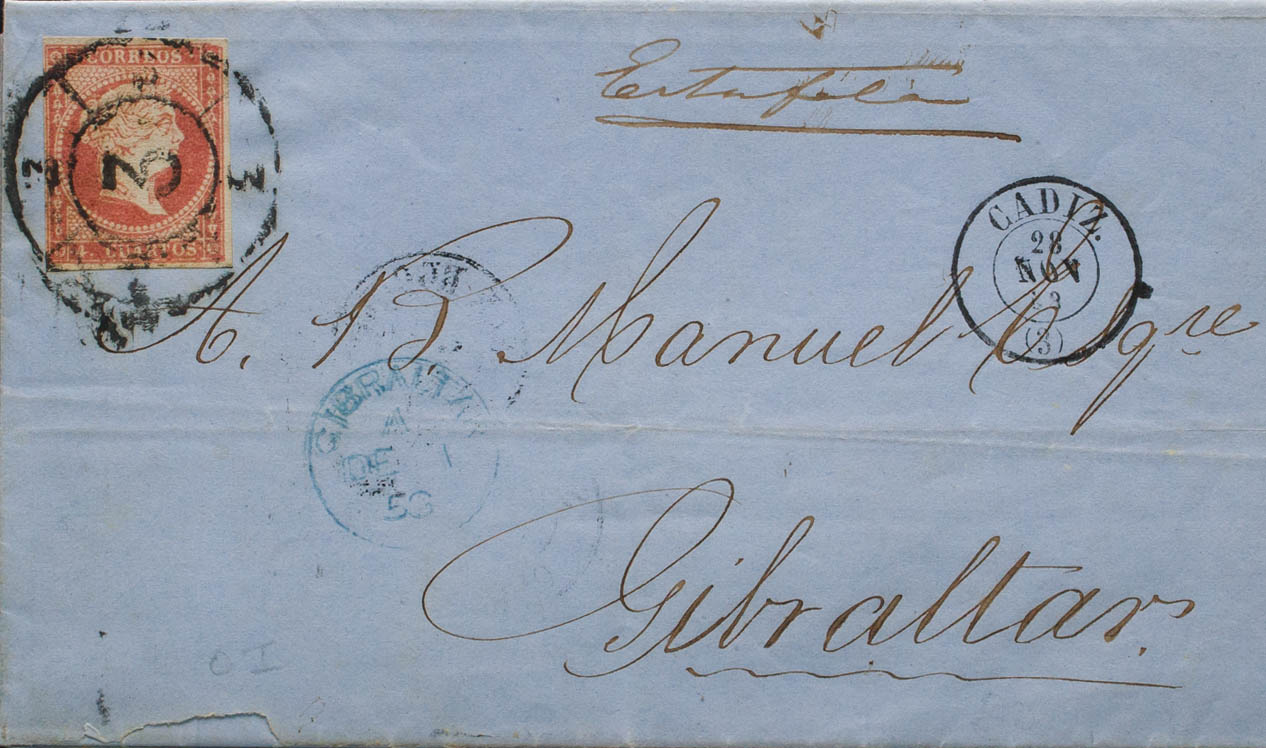 CORREOS
3
3
3
4 CUARTOS
Estafeta
CADIZ.
28
NOV
(3)
A. B. Manuel Esqre
GIBRALTA
A
DE 1
Gibraltar.